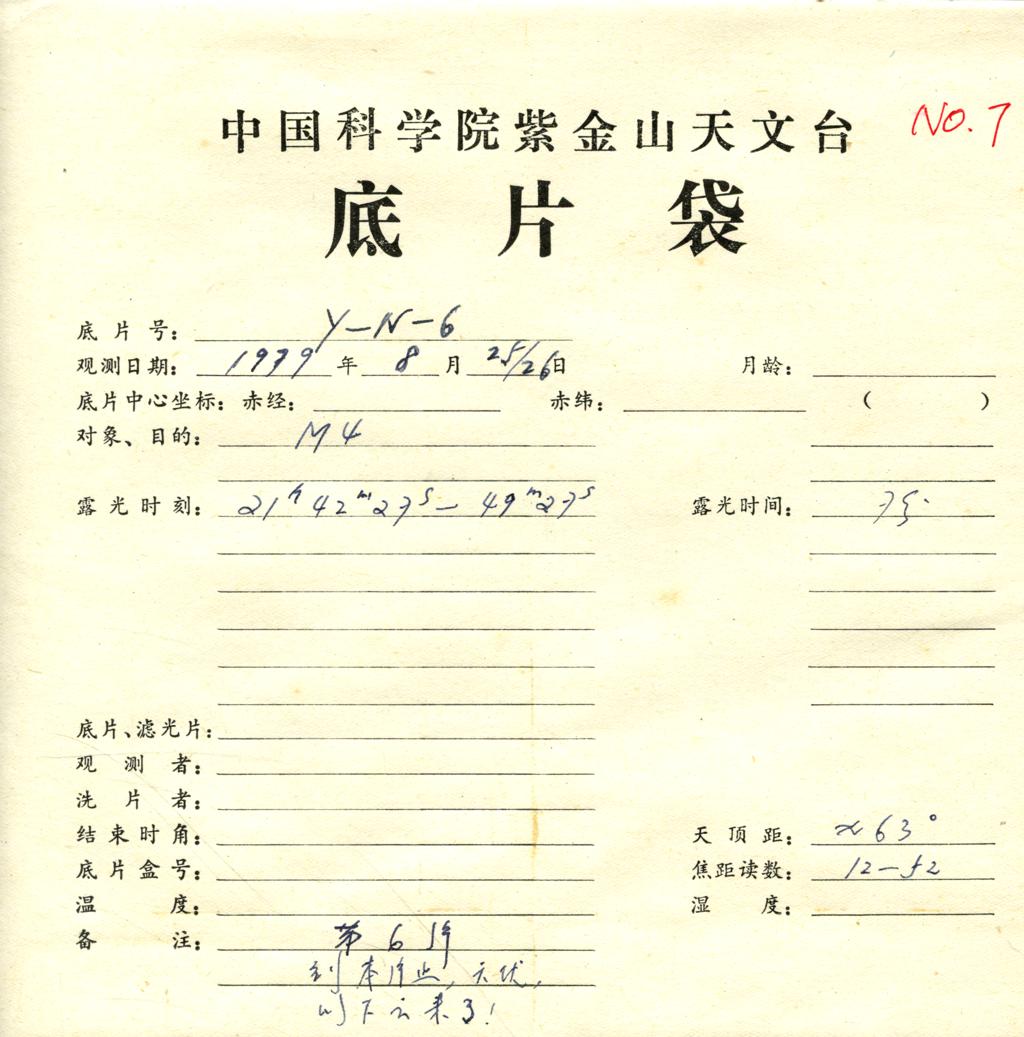 中国科学院紫金山天文台 NO.7
底片袋
底片号: Y-N-6
观测日期: 1979年8月25/26日 月龄:
底片中心坐标: 赤经: 赤纬: ( )
对象、目的: M4
露光时刻: 21h42m27s-49m27s 露光时间: 7分
底片、滤光片:
观测者:
洗片者:
结束时角: 天顶距: ≈63°
底片盒号: 焦距读数: 12-52
温度: 湿度:
备注: 第6片
到本片止,天
以下云来了!